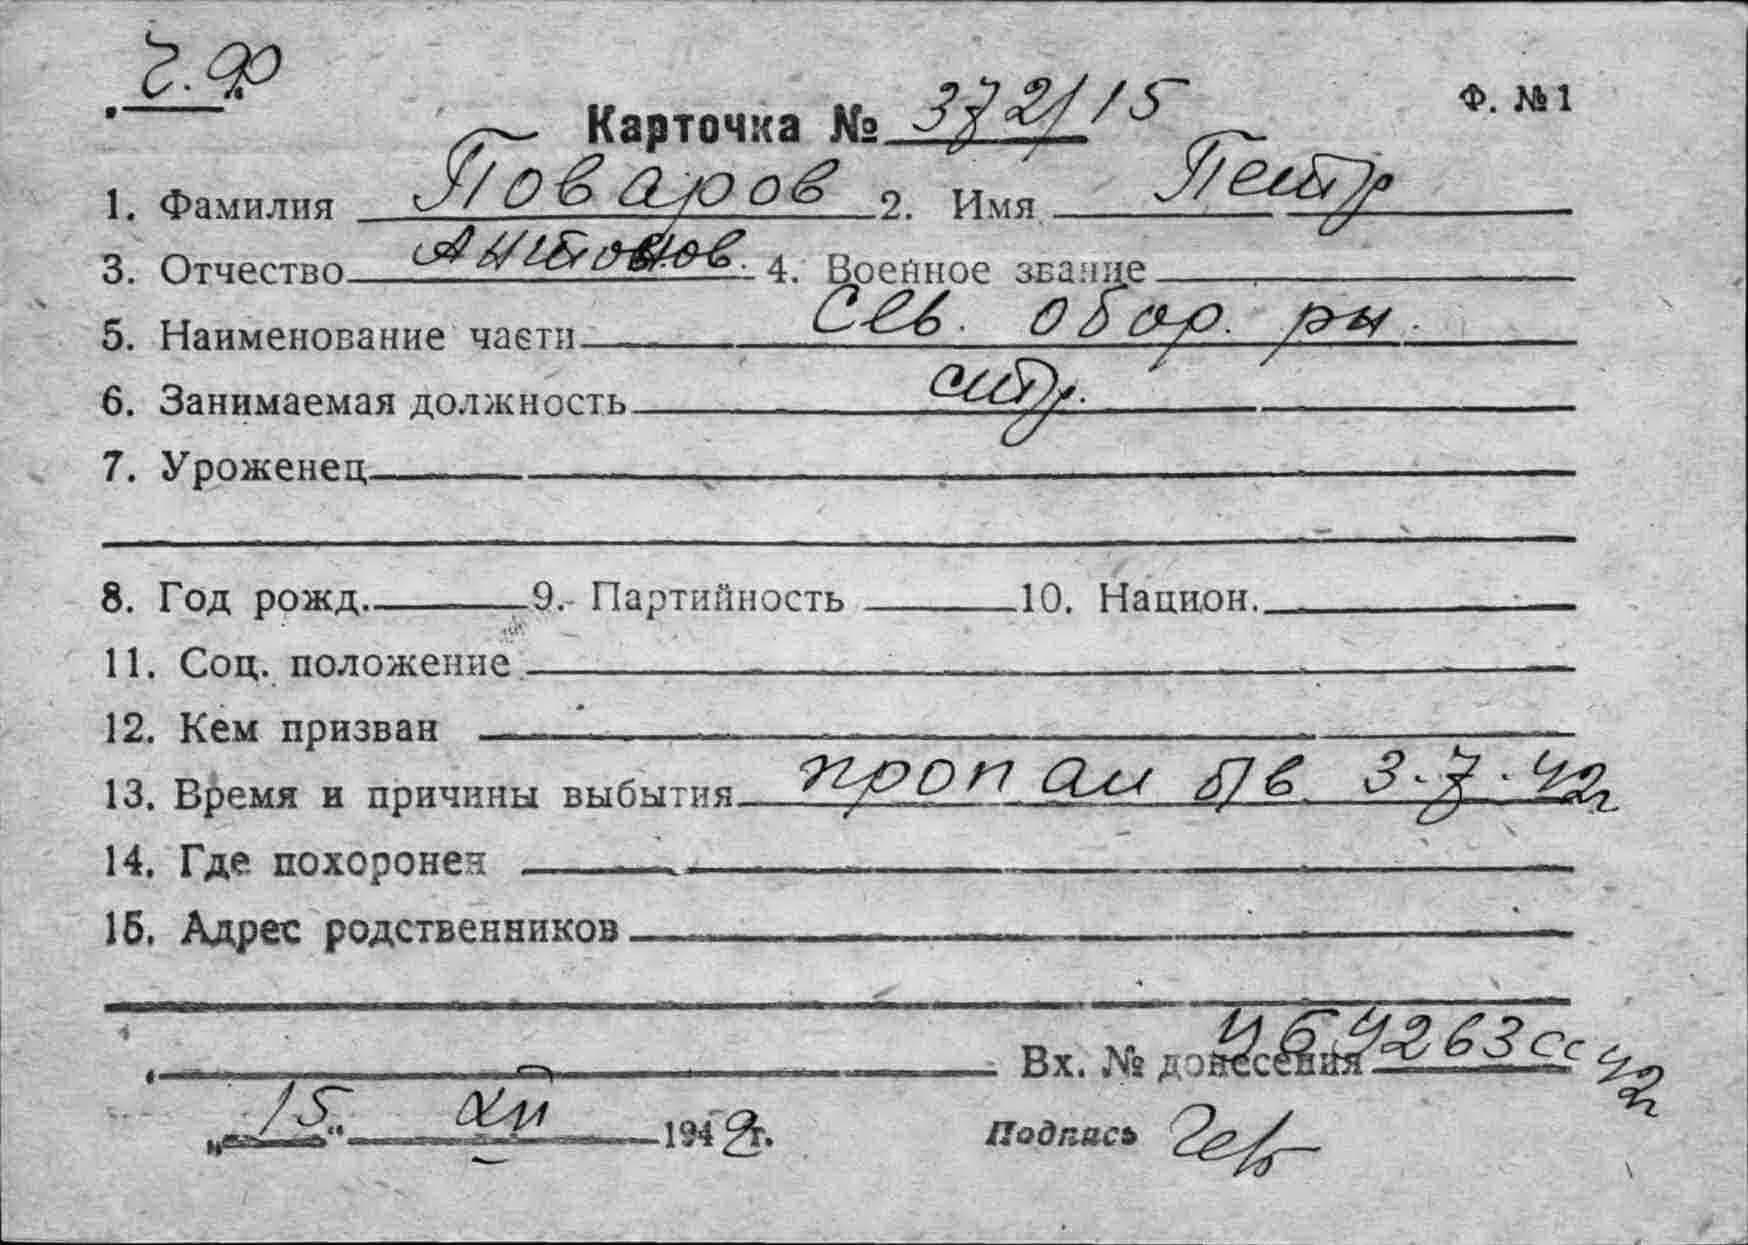 Ч.Ф
Карточка № 372/15 Ф. №1
1. Фамилия Поваров 2. Имя Петр
3. Отчество Антонов. 4. Военное звание
5. Наименование части Сев. обор. рн.
6. Занимаемая должность стр.
7. Уроженец
8. Год рожд. 9. Партийность 10. Национ.
11. Соц. положение
12. Кем призван
13. Время и причины выбытия пропал б/в 3.7.42г
14. Где похоронен
15. Адрес родственников
Вх. № донесения 4263сс 42г
„15“ XII 1942г. Подпись